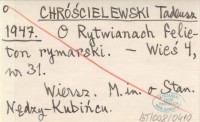 o CHRÓŚCIELEWSKI Tadeusz
1947. O Rytwianach felie-
ton rymarski. – Wieś 4,
nr 31.
Wiersz. M.in. o Stan.
Nędzy-Kubińcu.
BT/008/0410